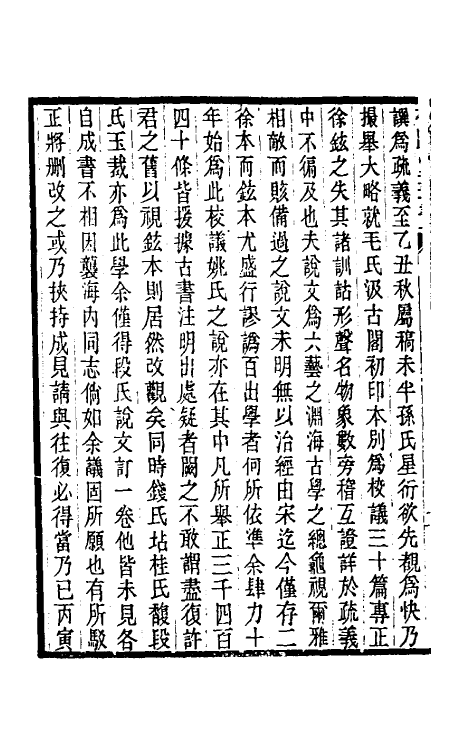 譔爲疏義至乙丑秋屬稿未半孫氏星衍欲先覩爲快乃
撮舉大略就毛氏汲古閣初印本別爲校議三十篇專正
徐鉉之失其諸訓詁形聲名物象數旁稽互證詳於疏義
中不徧及也夫說文爲六藝之淵海古學之總龜視爾雅
相敵而賅備過之說文未明無以治經由宋迄今僅存二
徐本而鉉本尤盛行謬譌百出學者何所依準余肆力十
年始爲此校議姚氏之說亦在其中凡所舉正三千四百
四十條皆援據古書注明出處疑者闕之不敢謂盡復許
君之舊以視鉉本則居然改觀矣同時錢氏坫桂氏馥段
氏玉裁亦爲此學余僅得段氏說文訂一卷他皆未見各
自成書不相因襲海內同志倘如余議固所願也有所駁
正將刪改之或乃挾持成見請與往復必得當乃已丙寅